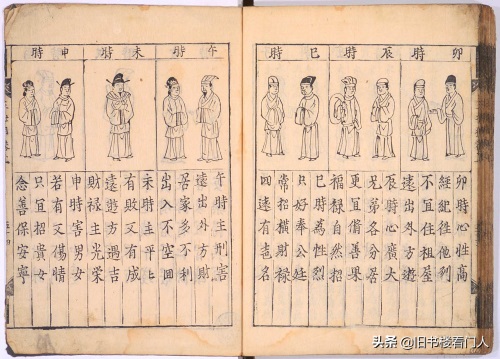 卯時
辰時
巳時
卯時心性高
經紀往他利
不宜住祖屋
遠出外方遊
辰時心廣大
兄弟各分居
更宜脩善果
福祿自然招
巳時為性烈
只好奉公廷
常招橫財祿
遠有名
午時
未時
申時
午時主刑害
遠出外方財
居家多不利
出入不空回
未時主平上
有敗又有成
遠遊方遇吉
財祿主光榮
申時害男女
若有又傷情
只宜招貴女
念善保安寧
头条 @旧书楼看门人